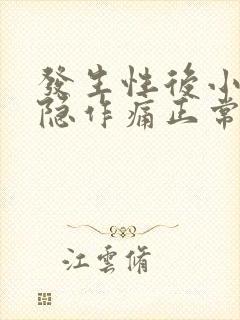 發生性後小
隐作痛正常
江雲脩